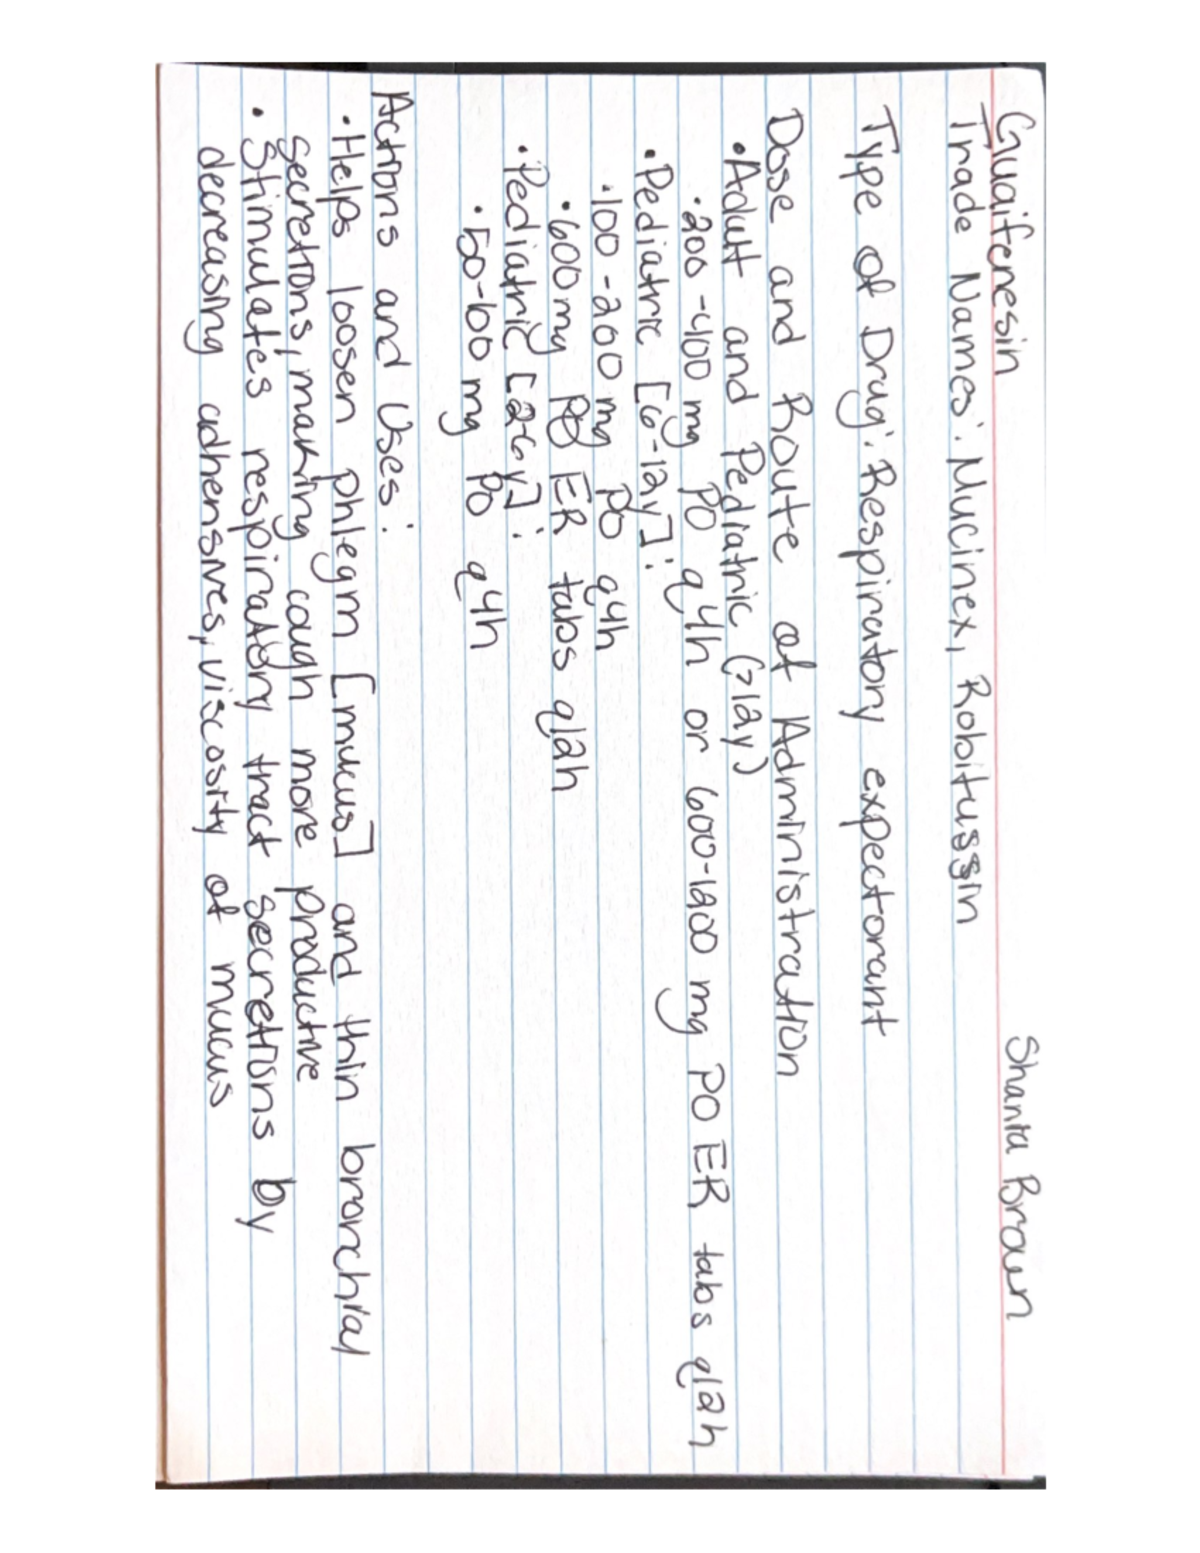 Shanta Brown
Guaifenesin
Trade Names: Mucinex, Robitussin
Type of Drug: Respiratory expectorant
Dose and Route of Administration
• Adult and Pediatric (>12y)
• 200-400 mg PO q4h or 600-1200 mg PO ER tabs q12h
• Pediatric [6-12y]:
• 100-200 mg PO q4h
• 600mg PO ER tabs q12h
• Pediatric [2-6y]:
• 50-100 mg PO q4h
Actions and Uses:
• Helps loosen phlegm [mucus] and thin bronchial
secretions, making cough more productive
• Stimulates respiratory tract secretions by
decreasing adhensives, viscosity of mucus